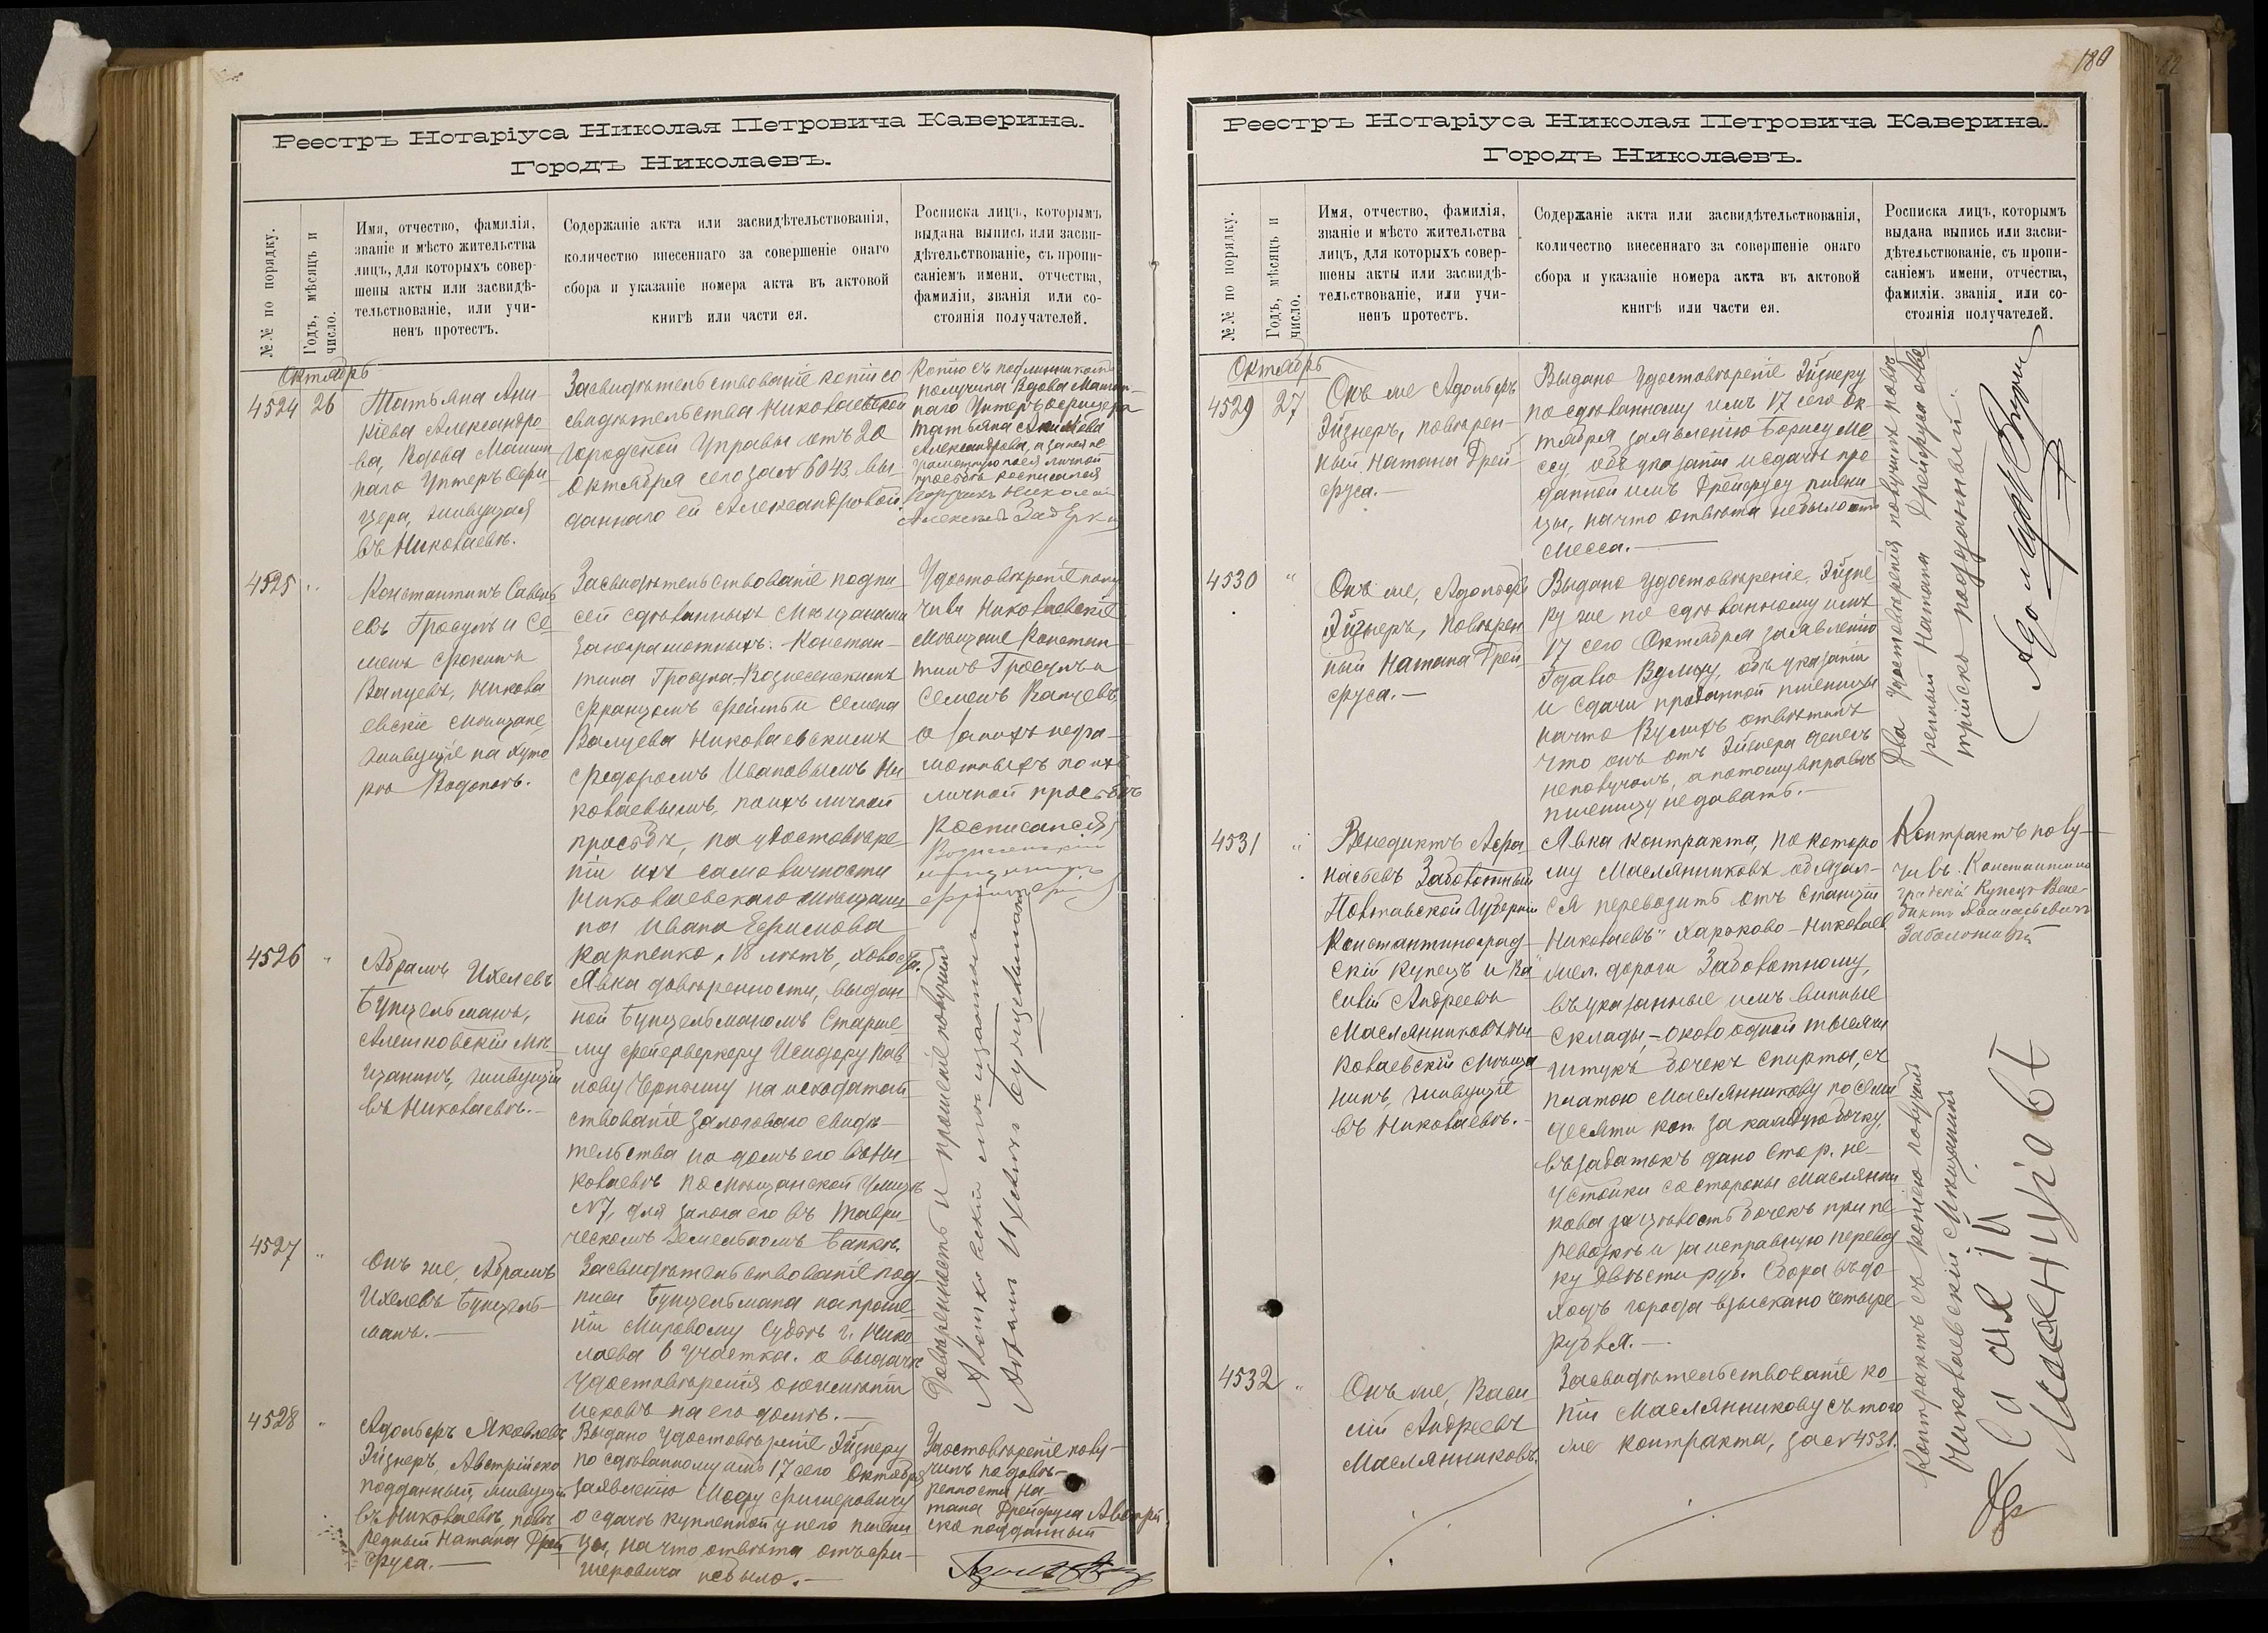 Реестръ Нотаріуса Николая Петровича Каверина.
Городъ Николаевъ.
№№ по порядку.
Годъ, мѣсяцъ и
число.
Имя, отчество, фамилія,
званіе и мѣсто жительства
лицъ, для которыхъ совер-
шены акты или засвидѣ-
тельствованіе, или учи-
ненъ протестъ.
Содержаніе акта или засвидѣтельствованія,
количество внесеннаго за совершеніе онаго
сбора и указаніе номера акта въ актовой
книгѣ или части ея.
Росписка лицъ, которымъ
выдана выпись или засви-
дѣтельствованіе, съ пропи-
саніемъ имени, отчества,
фамиліи, званія или со-
стоянія получателей.
Октябрь
4524 26
Татьяна Ани-
кіева Александро
ва, Вдова Матин
наго Унтеръ Офи-
цера, живущая
въ Николаевѣ.
Засвидѣтельствованіе копіи со
свидѣтельства Николаевской
Городской Управы отъ 20
Октября сего за № 6043 вы-
даннаго ей Александровой.
Копію съ подлинникомъ
получила Вдова
наго Унтеръ Офицера
Татьяна Аникіева
Александрова, а за нея не
грамотную по ея личной
просьбѣ росписался
Николай
4525 "
Константинъ Савель
евъ Гросулъ и Се-
менъ Фокинъ
Валуевъ, Никола
евскіе Мѣщане
живущіе на хуто
рѣ Водопоѣ.
Засвидѣтельствованіе подпи-
сей сдѣланныхъ Мѣщанами
за неграмотныхъ: Констан-
тина Гросула-Вознесенскимъ
Францомъ Фейтъ и Семена
Валуева Николаевскимъ
Федоромъ Ивановымъ Ни
колаевымъ, по ихъ личной
просьбѣ, по удостовѣре-
ніи ихъ самоличности
Николаевскаго мѣщани
на Ивана Ефимова
Карпенко, 18 лѣтъ,
Удостовѣреніе полу
чили Николаевскіе
Мѣщане Констан
тинъ Гросулъ и
Семенъ Валуевъ,
а за нихъ негра-
мотныхъ по ихъ
личной просьбѣ
Росписался
Вознесенскій
мѣщанинъ
4526 "
Абрамъ Ихелевъ
Бунцельманъ,
Алешковскій Мѣ-
щанинъ, живущій
въ Николаевѣ.-
Явка довѣренности, выдан-
ной Бунцельманомъ Старше
му Фейерверкеру Исидору Пав
лову Черному на исходатай
ствованіе залоговаго свидѣ-
тельства на домъ его въ Ни
колаевѣ по Мѣщанской улицѣ
№7, для залога его въ Таври-
ческомъ Земельномъ Банкѣ.
Довѣренность и прошеніе получилъ
Алешковскій мѣщанинъ
Абрамъ Ихелевъ Бунцельманъ
4527 "
Онъ же, Абрамъ
Ихелевъ Бунцель-
манъ.-
Засвидѣтельствованіе под-
писи Бунцельмана на проше
ніи Мировому Судьѣ г. Нико
лаева 6 участка. о выдачѣ
удостовѣренія о неимѣніи
исковъ на его домъ.-
4528 "
Адольфъ Яковлевъ
Эйзнеръ, Австрійско
подданный, живущій
въ Николаевѣ, повѣ
ренный Натана Дрей
фуса.-
Выдано удостовѣреніе Эйзнеру
по сдѣланному имъ 17 сего Октября
заявленію Фишеровичу
о сдачѣ купленной у него пшени
цы, на что отвѣта отъ Фи-
шеровича не было.-
Удостовѣреніе полу-
чилъ по довѣ-
ренности На-
тана Дрейфуса Австрій
ско подданный
180
Реестръ Нотаріуса Николая Петровича Каверина.
Городъ Николаевъ.
№№ по порядку.
Годъ, мѣсяцъ и
число.
Имя, отчество, фамилія,
званіе и мѣсто жительства
лицъ, для которыхъ совер-
шены акты или засвидѣ-
тельствованіе, или учи-
ненъ протестъ.
Содержаніе акта или засвидѣтельствованія,
количество внесеннаго за совершеніе онаго
сбора и указаніе номера акта въ актовой
книгѣ или части ея.
Росписка лицъ, которымъ
выдана выпись или засви-
дѣтельствованіе, съ пропи-
саніемъ имени, отчества,
фамиліи. званія или со-
стоянія получателей.
Октябрь
4529 27
Онъ же Адольфъ
Эйзнеръ, повѣрен-
ный Натана Дрей-
фуса.-
Выдано удостовѣреніе Эйзнеру
по сдѣланному имъ 17 сего Ок-
тября заявленію Борису Ме
ссу объ указаніи и сдачѣ про
данной имъ Дрейфусу пшени
цы, на что отвѣта не было отъ
Месса.-
4530 "
Онъ же, Адольфъ
Эйзнеръ, Повѣрен
ный Натана Дрей-
фуса.-
Выдано удостовѣреніе, Эйзне
ру же по сдѣланному имъ
17 сего Октября заявленію
объ указаніи
и сдачи проданной пшеницы
на что Вулихъ отвѣтилъ
что онъ отъ Эйзнера денегъ
не получалъ, а потому вправѣ
пшеницу не давать.-
Два удостовѣренія получилъ повѣ
ренный Натана Дрейфуса
трійско подданный.
4531 "
Венедиктъ Афа-
насьевъ Заболотный
Полтавской Губерніи
Константиноград-
скій Купецъ и Ва
силій Андреевъ
Маслянниковъ, Ни
колаевскій Мѣща
нинъ, живущіе
въ Николаевѣ.-
Явка Контракта, по которо
му Маслянниковъ обязал-
ся перевозить отъ Станціи
"Николаевъ" Харьково-Николаев
жел. дороги Заболотному,
въ указанные имъ винные
склады,-около одной тысячи
штукъ бочекъ спирта, съ
платою Маслянникову по семи
десяти коп. за каждую бочку,
въ задатокъ дано Сто р. не-
устойки со стороны Маслянни
кова за цѣлость бочекъ при пе
ревозкѣ и за исправную перевоз
ку двѣсти руб. Сбора въ до-
ходъ города взыскано четыре
рубля.-
Контрактъ полу-
чилъ. Константино
градскій Купецъ Вене-
диктъ Афанасьевичъ
Заболотный
4532 "
Онъ же, Васи
лій Андреевъ
Маслянниковъ.
Засвидѣтельствованіе ко-
піи Маслянникову съ того
же контракта, за № 4531.
Контрактъ съ копіею получилъ
Николаевскій Мѣщанинъ